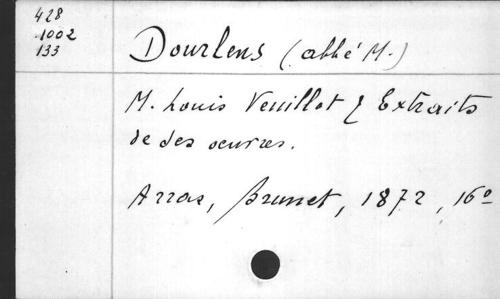 428
1002
133
Dourlens (abbé M.)
M. Louis Veuillot & Extraits
de des oeuvres.
Arras, Brunet, 1872, 16º